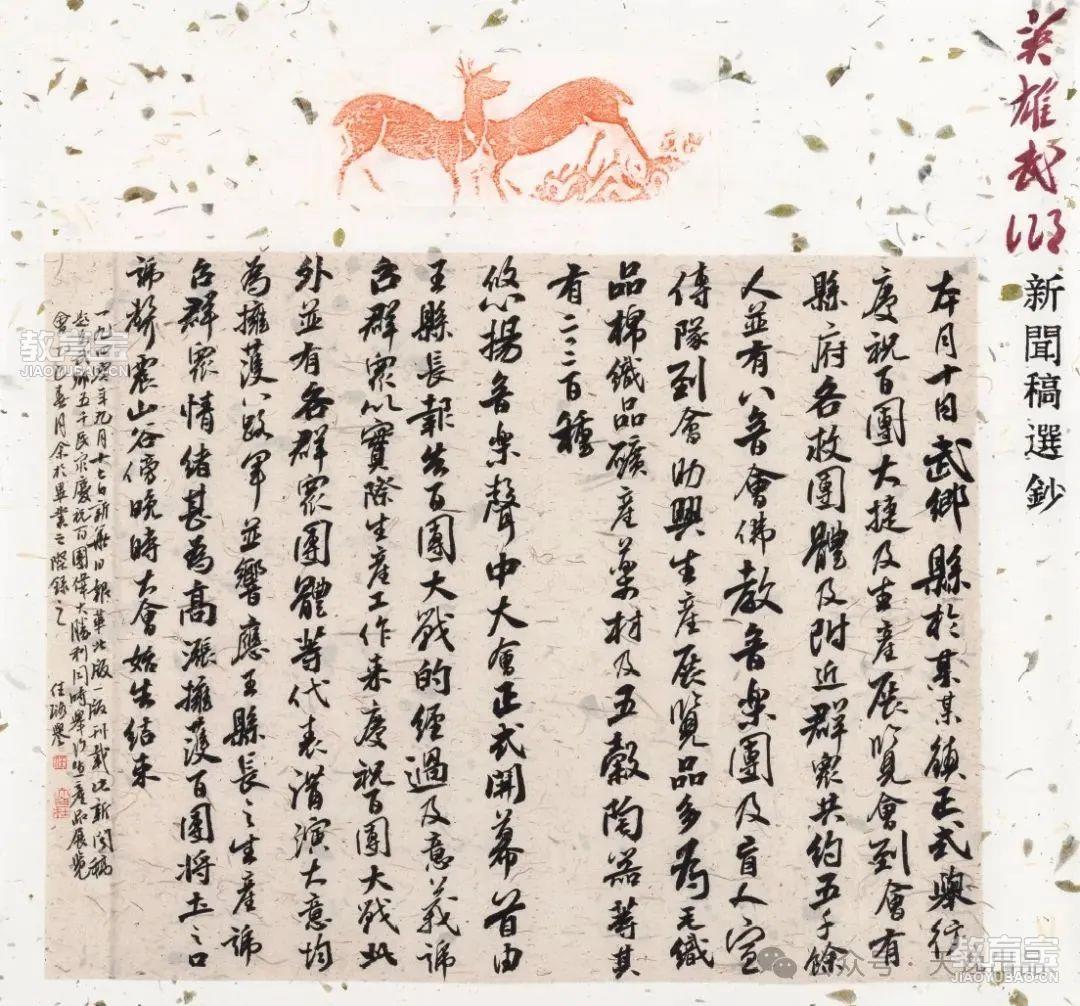 英雄武鄉
新聞稿選鈔
本月十日武鄉縣於某某鎮正式舉行
慶祝百團大捷及生產展覽會到會有
縣府各救團體及附近群眾共約五千餘
人並有八音會佛教音樂團及盲人宣
傳隊到會助興生產展覽品多為毛織
品棉織品礦產藥材及五穀陶器等共
有二三百種
悠揚音樂聲中大會正式開幕首由
王縣長報告百團大戰的經過及意義號
召群眾以實際生產工作來慶祝百團大戰此
外並有各群眾團體等代表講演大意均
為擁護八路軍並響應王縣長之生產號
召群眾情緒甚為高漲擁護百團將士之口
號聲震山谷傍晚時大會始告結束
一九四零年九月十七日新華日報華北版一版刊載此新聞稿
題為武鄉五千民眾慶祝百團偉大勝利同時舉行生產品展覽
會 乙巳春月余於畢業之際錄之
教育宝
JIAOYUBAO.CN
教育宝
JIAOYUBAO.CN
教育宝
JIAOYUBAO.CN